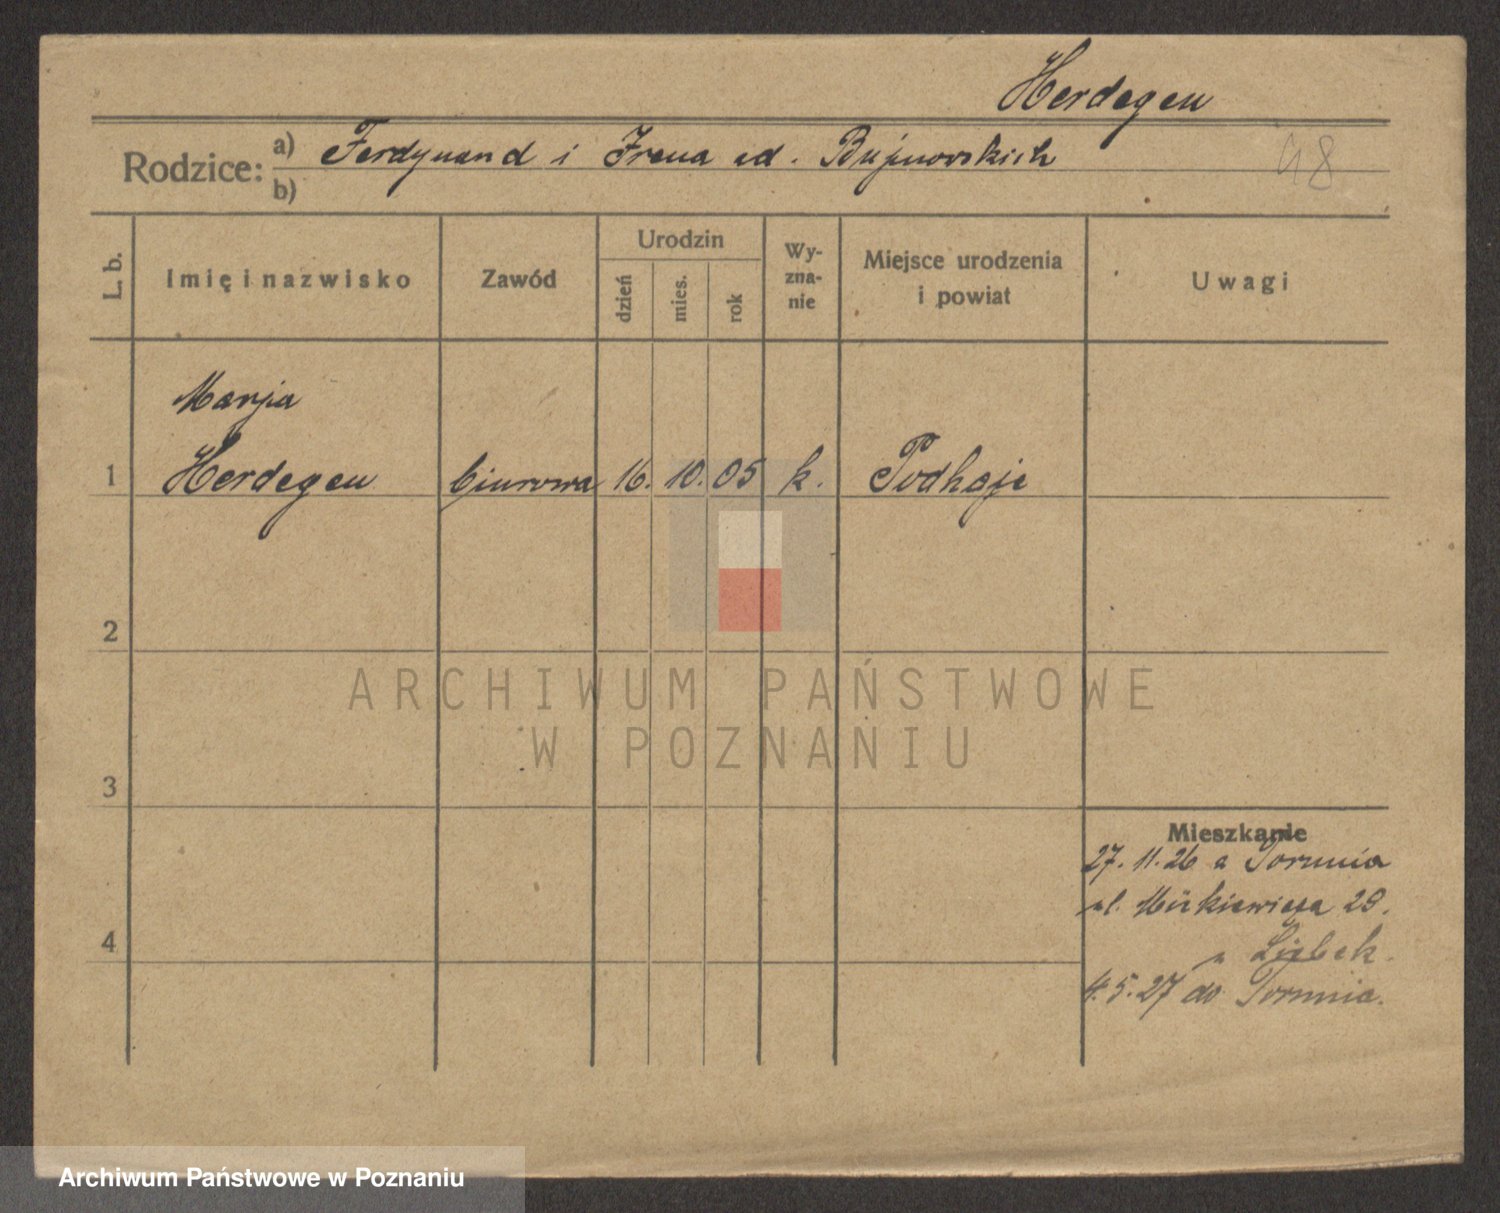 Herdegen
Rodzice: a) Ferdynand i Irena ad. Bujnovskich
b)
48
L. b.
Imię i nazwisko
Zawód
Urodzin
dzień
mies.
rok
Wy-
zna-
nie
Miejsce urodzenia
i powiat
Uwagi
Marja
1 Herdegen biurowa 16. 10. 05 k. Podhaje
2
3
4
Mieszkanie
27. 11. 26 a Torunia
ul. Mickiewicza 28.
u
4. 5. 27 do Torunia.
ARCHIWUM PAŃSTWOWE
W POZNANIU
Archiwum Państwowe w Poznaniu